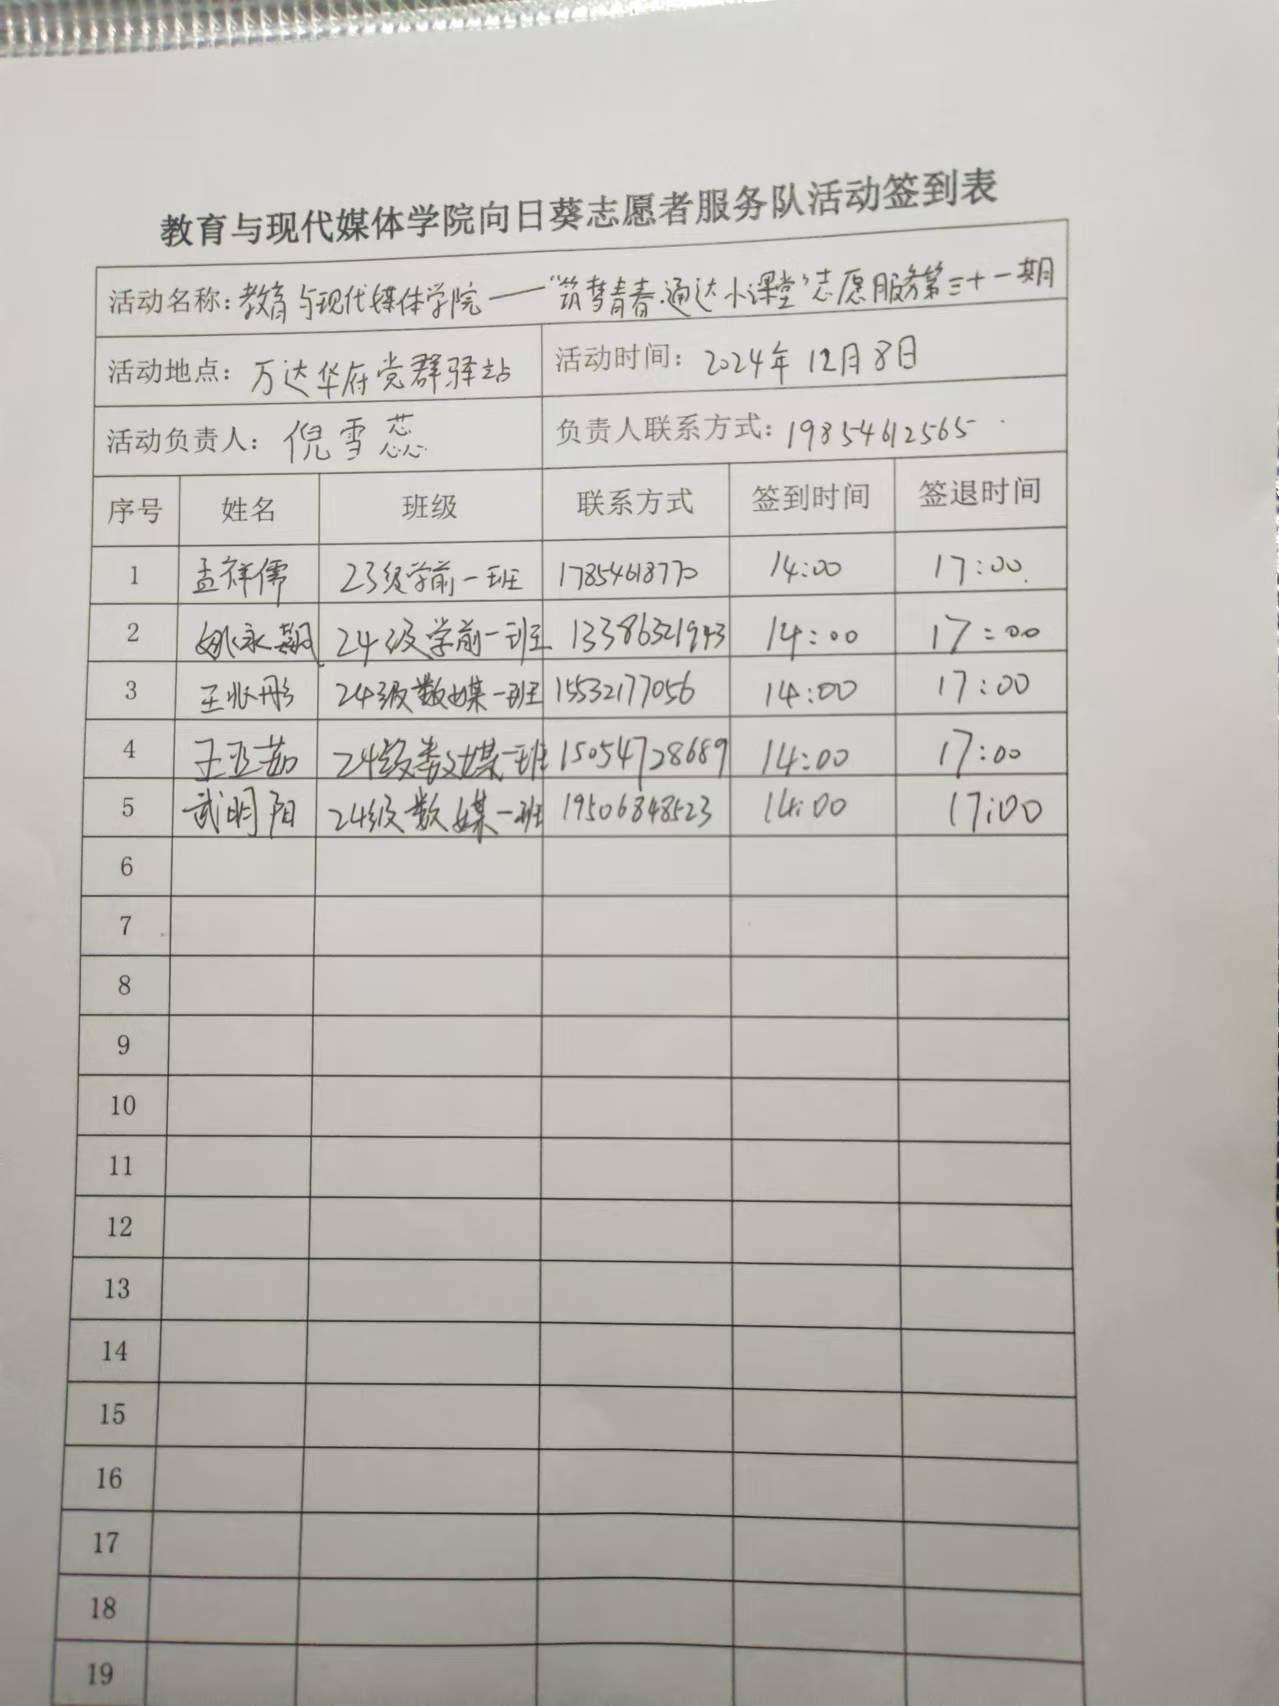 教育与现代媒体学院向日葵志愿者服务队活动签到表
活动名称：教育与现代媒体学院——“筑梦青春·通达小课堂”志愿服务第三十一期
活动地点：万达华府党群驿站 活动时间：2024年12月8日
活动负责人：倪雪蕊 负责人联系方式：19854612565
序号 姓名 班级 联系方式 签到时间 签退时间
1 孟祥儒 23级学前一班 17854618770 14:00 17:00
2 姚永翱 24级学前一班 13386321943 14:00 17:00
3 王兆彤 24级数媒一班 15532177056 14:00 17:00
4 王亚茹 24级数媒一班 15054728689 14:00 17:00
5 武明阳 24级数媒一班 19506848523 14:00 17:00
6
7
8
9
10
11
12
13
14
15
16
17
18
19